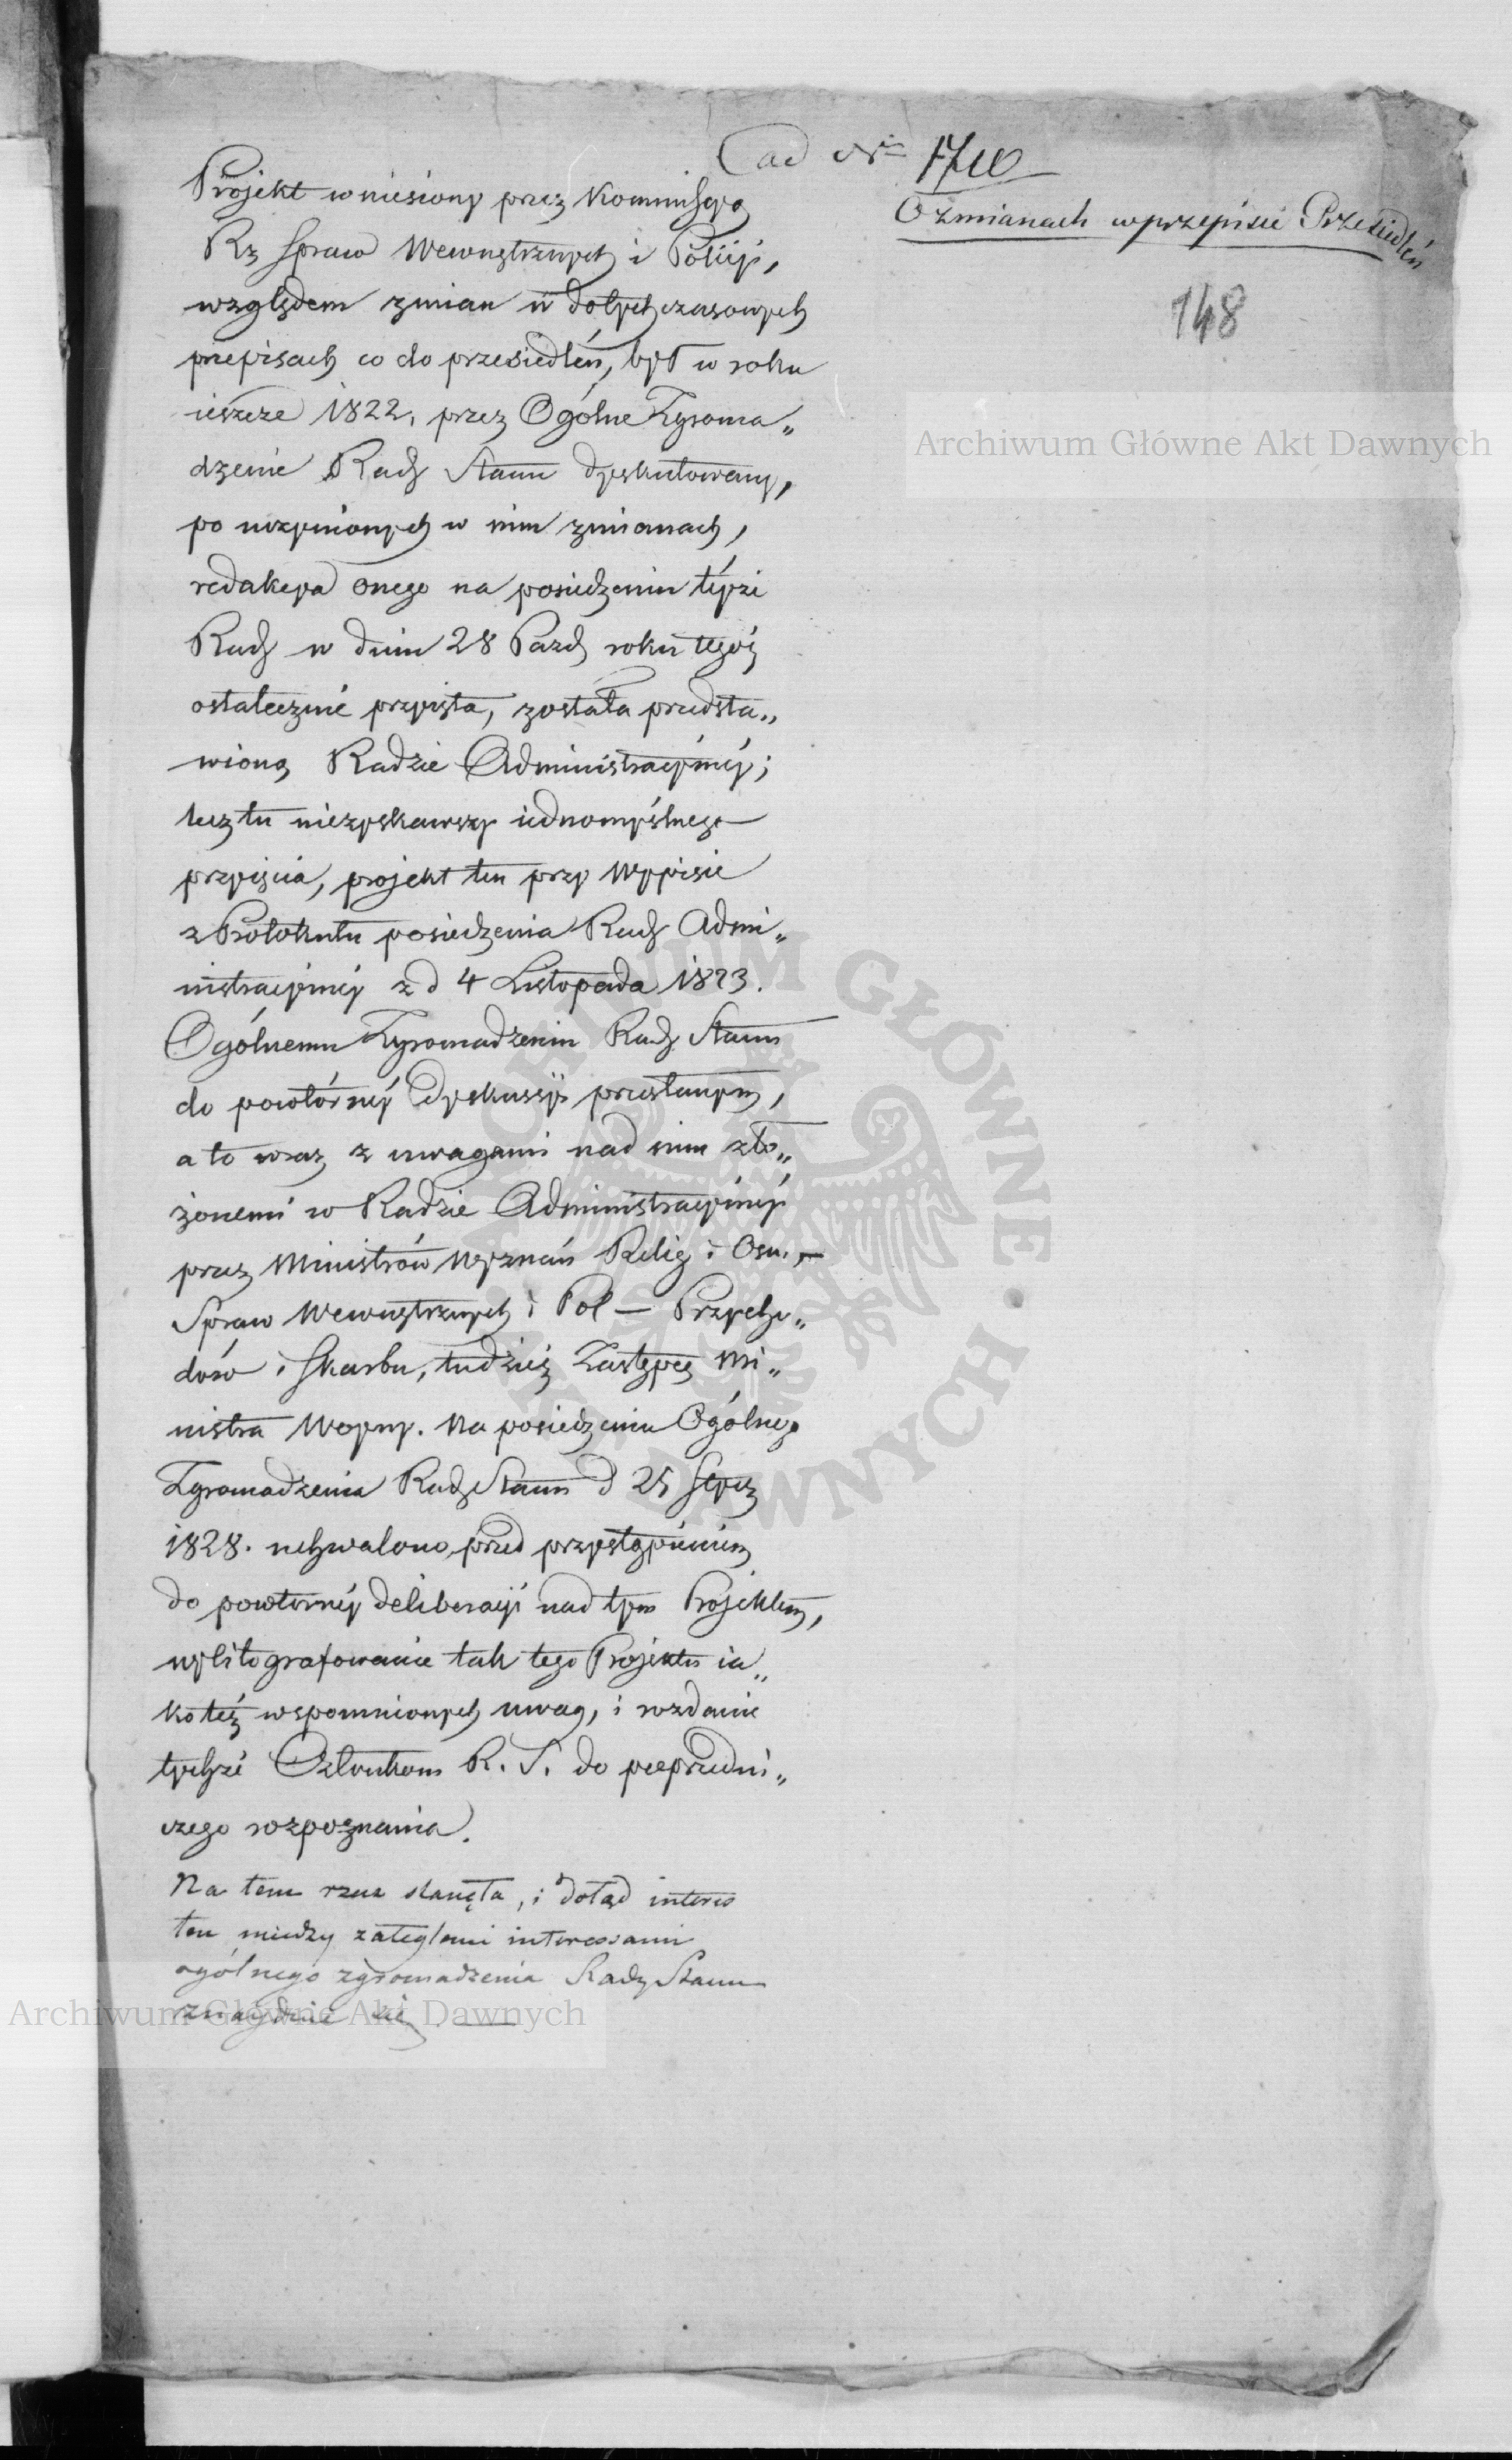 ad Nr 1710
O zmianach w przepisie Przesiedleń
148
Projekt wniesiony przez Kommissyą
Rz Spraw Wewnętrznych i Policyi,
względem zmian w dotychczasowych
przepisach co do przesiedleń, był w roku
ieszcze 1822, przez Ogólne Zgroma„
dzenie Rady Stanu dyskutowany,
po uczynionych w nim zmianach,
redakcya onego na posiedzeniu téyże
Rady w dniu 28 Pazd roku tegoż
ostatecznie przyięta, została przedsta„
wioną Radzie Administracyinéy;
lecz tu niezyskawszy iednomyślnego
przyięcia, projekt ten przy Wypisie
z Protokułu posiedzenia Rady Admi„
nistracyinéy z d 4 Listopada 1823.
Ogólnemu Zgromadzeniu Rady Stanu
do powtórnéy dyskussyi przesłanym,
a to wraz z uwagami nad nim zło„
żonemi w Radzie Administracyinéy
przez Ministrów Wyznań Relig i Osw. —
Spraw Wewnętrznych i Pol — Przycho„
dów i Skarbu, tudzież Zastępcę Mi„
nistra Woyny. Na posiedzeniu Ogólnego
Zgromadzenia Rady Stanu d 25
1828. uchwalono, przed przystąpieniem
do powtornéy deliberacyi nad tym Projektem,
wylitografowanie tak tego Projektu ia„
koteż wspomnionych uwag, i rozdanie
tychże Członkom R. S. do poprzedni„
czego rozpoznania.
Na tem rzecz stanęła, i dotąd interes
ten między zaległemi interessami
ogólnego zgromadzenia Rady Stanu
znayduie się. —
Archiwum Główne Akt Dawnych
Archiwum Główne Akt Dawnych
ARCHIWUM GŁÓWNE AKT DAWNYCH